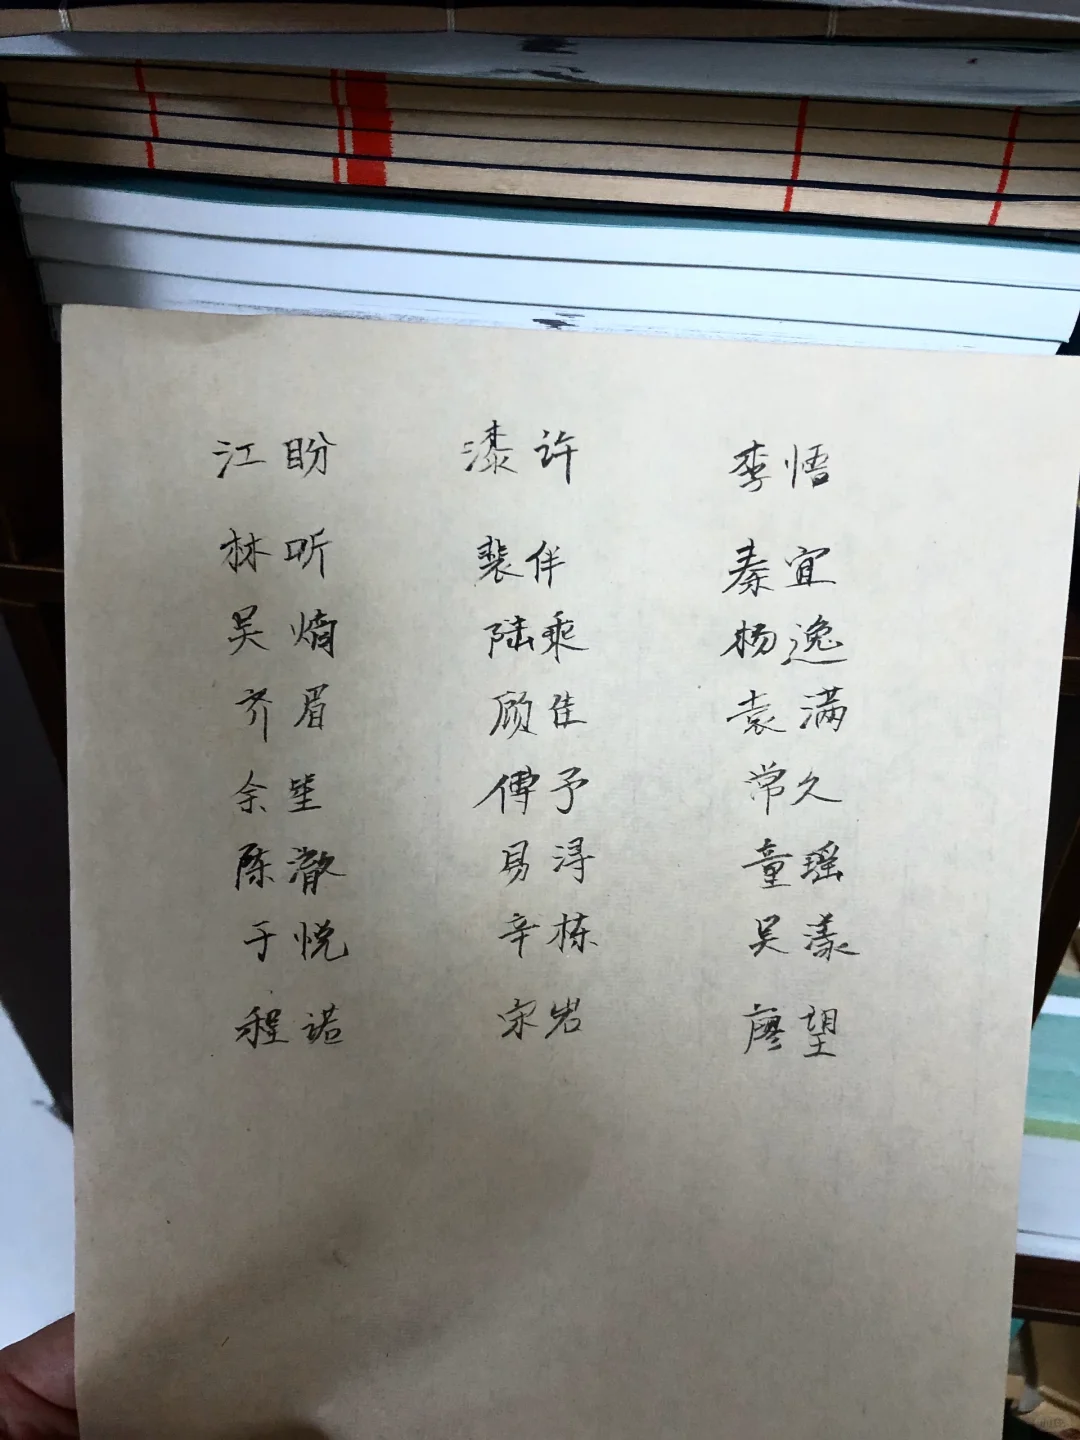 江盼 漆许 李悟
林听 裴伴 秦宜
吴焗 陆乘 杨逸
齐眉 顾佳 袁满
余笙 傅予 常久
陈澈 易浔 童瑶
于悦 辛栋 吴漾
程诺 宋岩 廖望